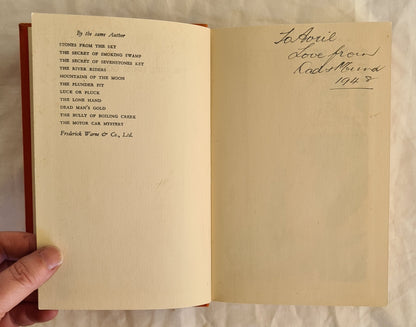 By the same Author
STONES FROM THE SKY
THE SECRET OF SMOKING SWAMP
THE SECRET OF SEVENSTONES KEY
THE RIVER RIDERS
MOUNTAINS OF THE MOON
THE PLUNDER PIT
LUCK OR PLUCK
THE LONE HAND
DEAD MAN'S GOLD
THE BULLY OF BOILING CREEK
THE MOTOR CAR MYSTERY
Frederick Warne & Co., Ltd.
To Avril
Love from
1948